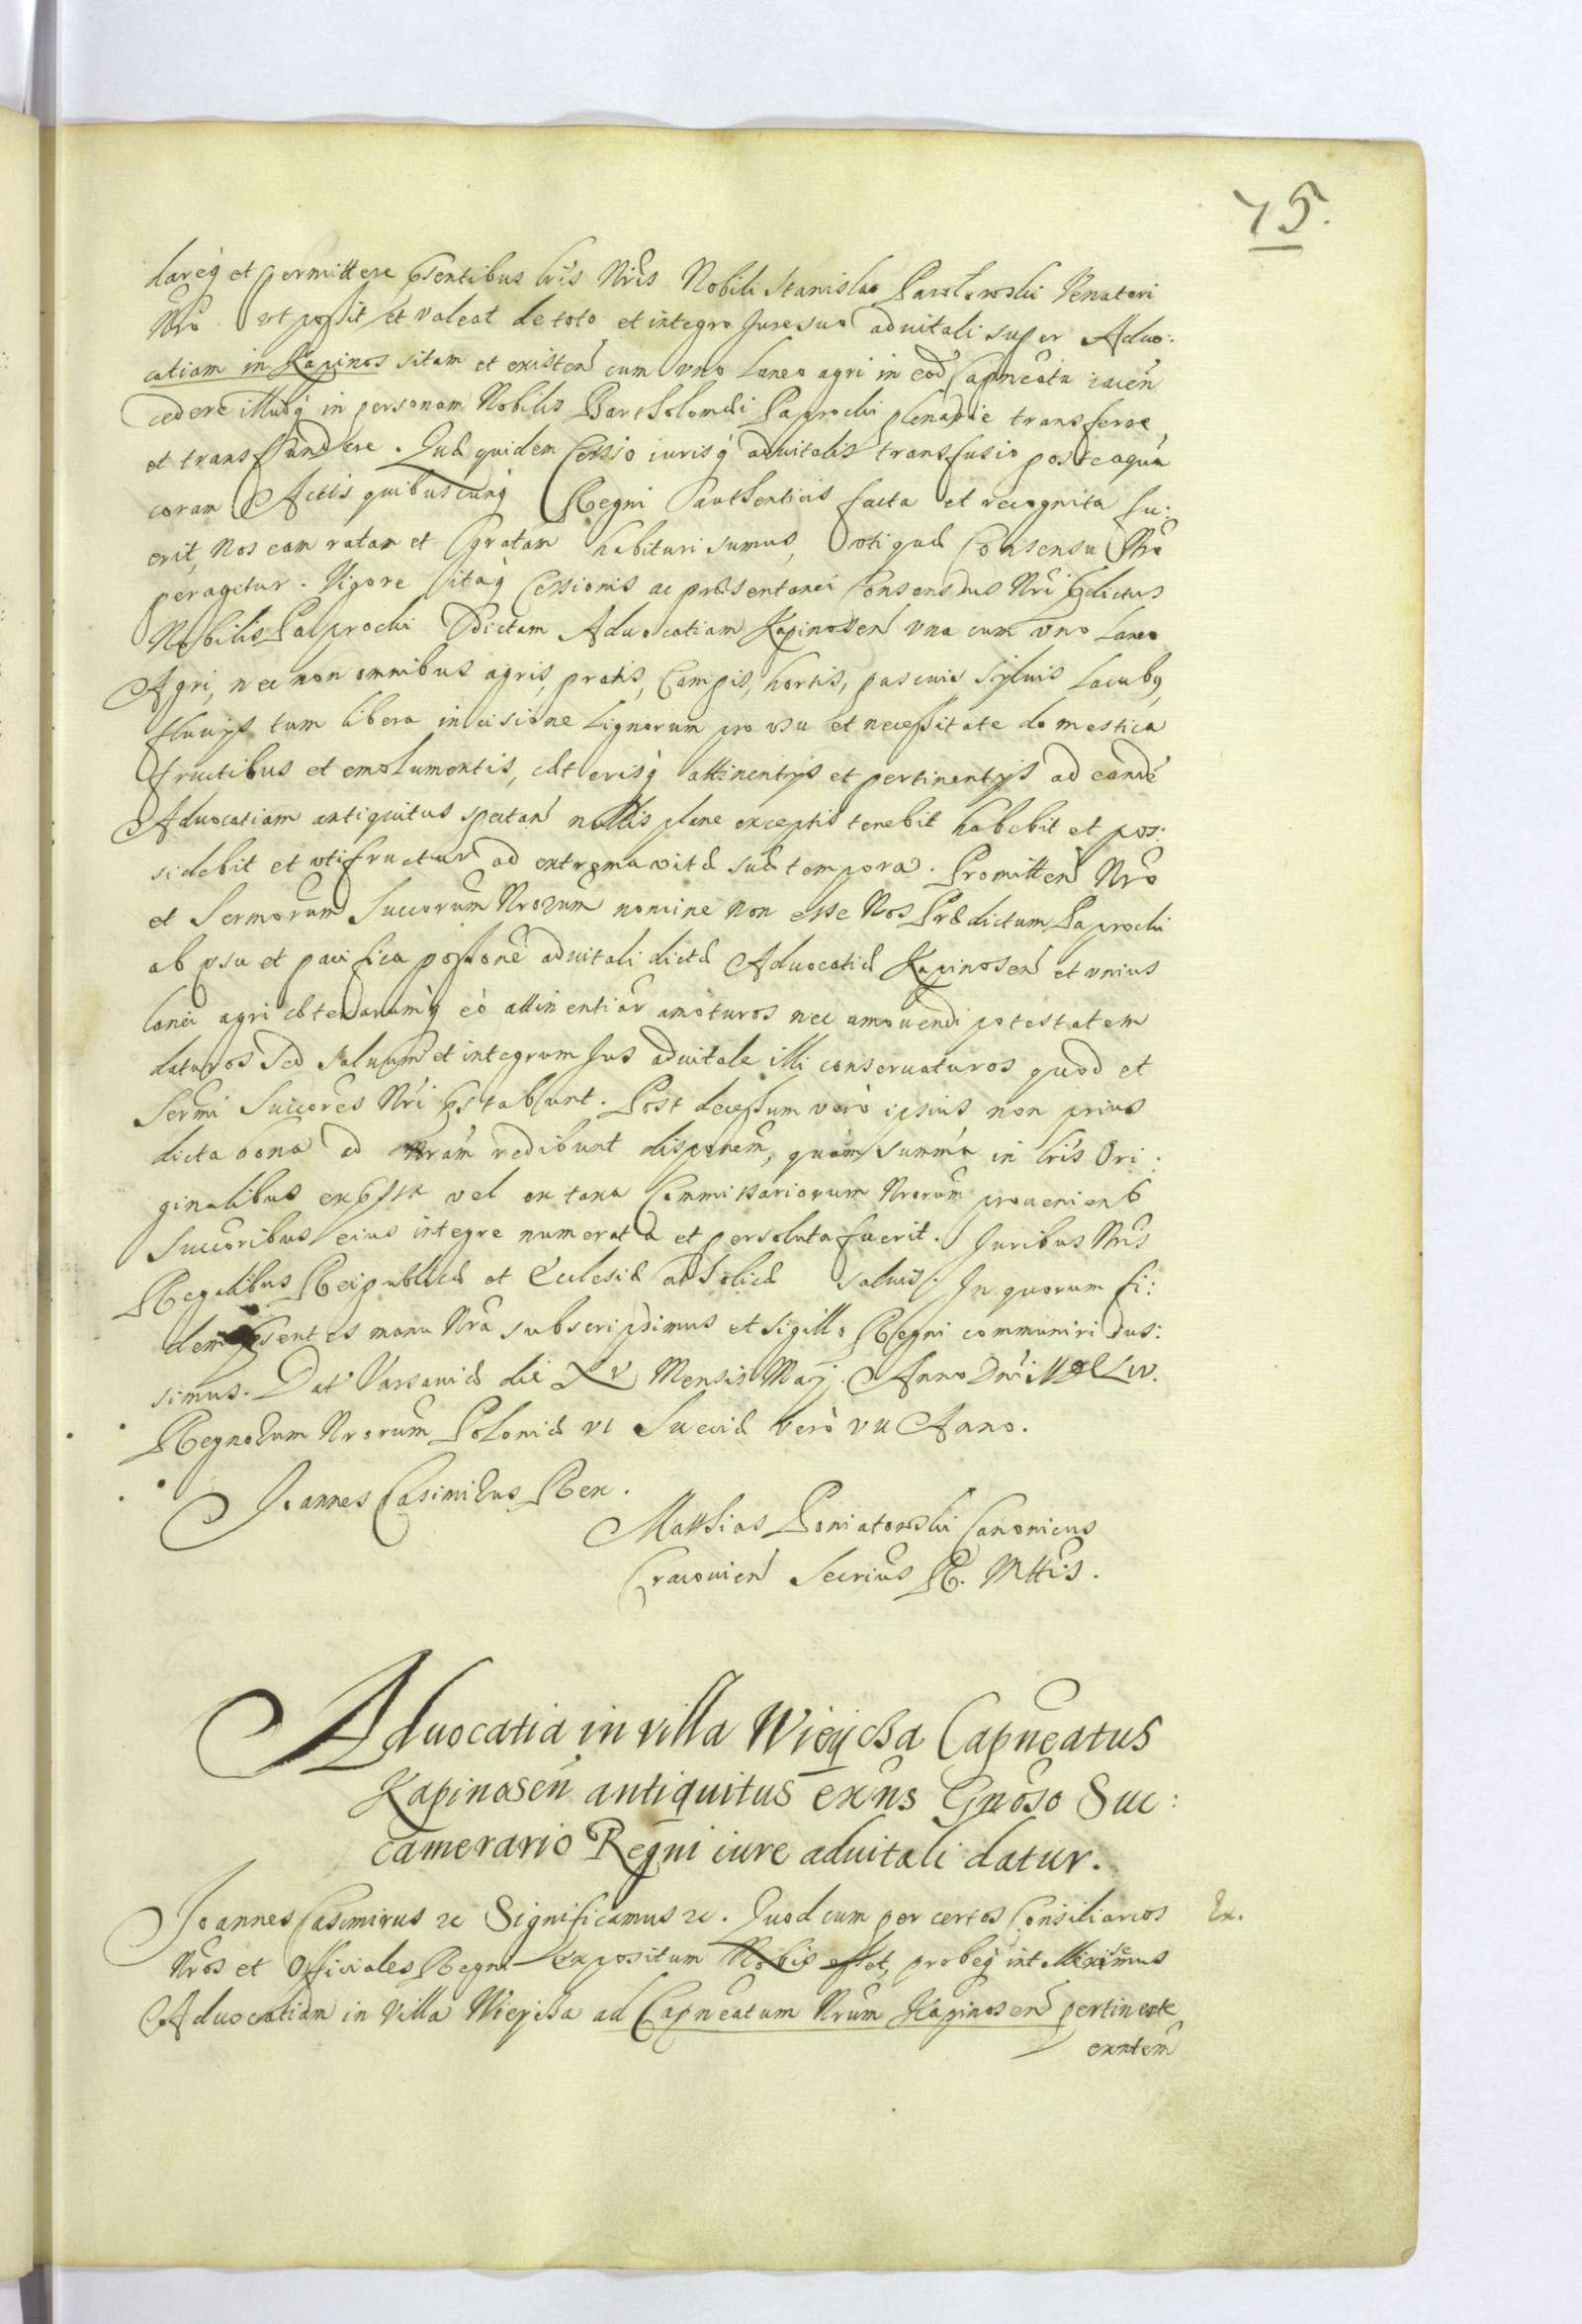 75.
dareq́ et permittere pn̄tibus lr̃is Nr̃is Nobili Stanislao Pawłowski Venatori
Nr̃o ut possit et valeat de toto et integro Jure suo aduitali super Aduo:
catiam in Kapinos sitam et existen̄ cum uno Laneo agri in eod̄ Capn̄eatu iacen̄
cedere illudq́ in personam Nobilis Bartholomæi Paprocki plenarie transferre,
et transfundere. Quæ quidem Cessio iurisq́ aduitalis transfusio posteaquā
coram Actis quibuscunq́ Regni authenticis facta et recognita fu:
erit, Nos eam ratam et gratam habituri sumus, utiquæ Consensu Nr̃o
peragetur. Vigore itaq́ Cessionis ac præsentanei Consensus Nr̃i p̄dictus
Nobilis Paprocki p̄dictam Aduocatiam Kapinosen̄ una cum uno Laneo
Agri, nec non omnibus agris, pratis, Campis, hortis, pascuis, syluis Lacubq,
fluuijs tum libera incisione Lignorum pro usu et necessitate domestica
fructibus et emolumentis, cæterisq́ attinentijs et pertinentijs ad eandē
Aduocatiam antiquitus spectan̄ nullis plane exceptis tenebit habebit et pos:
sidebit et utifruetur ad extrema vitæ suæ tempora. Promitten̄ Nr̃o
et Sermorum Succorum Nrorum nomine non esse Nos Prædictum Paprocki
ab usu et pacifica possōne aduitali dictæ Aduocatiæ Kapinosen̄ et unius
Lanei agri cæterarumq́ eò attinentiar̄ amoturos nec amouendi potestatem
daturos sed saluum et integrum Jus aduitale illi conseruaturos quod et
Sermi Succores Nr̃i p̄stabunt. Post decessum verò ipsius non prius
dicta bona ad nram redibunt disponem, quàm summa in lr̃is Ori:
ginalibus exp̄ssa vel ex taxa Commissariorum Nrorum prouenien̄
Succoribus eius integre numerata et persoluta fuerit. Juribus Nr̃is
Regalibus Reipublicæ et Ecclesiæ Catholicæ saluis. In quorum fi:
dem pn̄tes manu Nra subscripsimus et sigillo Regni communiri ius:
simus. Dat Varsauiæ die XV Mensis Maij. Anno Dni MDCLIV.
Regnorum Nrorum Poloniæ VI Sueciæ verò VII Anno.
Joannes Casimirus Rex.
Matthias Poniatowski Canonicus
Cracouien̄ Secrius R. Mttis.
Aduocatia in villa Wiejcza Capn̄eatus
Kapinosen̄ antiquitus exn̄s Gnōso Suc:
camerario Regni iure aduitali datur.
Joannes Casimirus &c Significamus &c. Quod cum per certos Consiliarios
Nros et Officiales Regni expositum Nobis esset, probeq́ intellexissemus
Aduocatiam in Villa Wiejcza ad Capn̄eatum Nrum Kapinosen̄ pertinente
exn̄tem
Ex.